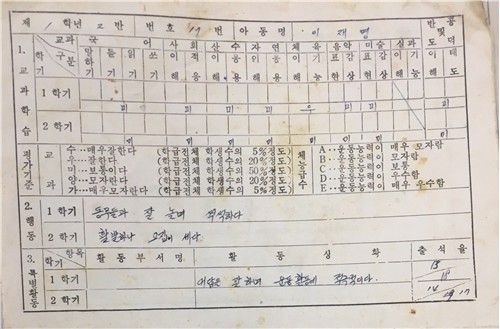 제 1 학년 2 반 번호 17번 아동명 이재명
반공 및 도덕
1. 교과학습
교과 구분 학기
국어 사회 산수 자연 체육 음악 미술 실과
말하기 듣기 읽기 쓰기 이해 적용 이해 응용 이해 응용 이해 기능 표현 감상 표현 감상 이해 기능 이해 태도
1 학기
미 미 미 미 미 우 미 미
2 학기
평가기준
교과
수…매우잘한다 (학급전체 학생수의 5%정도)
우…잘한다 (학급전체 학생수의 20%정도)
미…보통이다 (학급전체 학생수의 50%정도)
양…모자란다 (학급전체 학생수의 20%정도)
가…매우모자란다 (학급전체 학생수의 5%정도)
체능급수
A…운동능력이 매우 모자람
B…운동능력이 모자람
C…운동능력이 보통
D…운동능력이 우수함
E…운동능력이 매우 우수함
2. 행동
1 학기 동무들과 잘 놀며 씩씩하다
2 학기 활발하나 고집이 세다.
3. 특별활동
항목 학기 활동부서명 활동상황 출석율
1 학기 대답은 잘 하며 운동 활동에 적극적이다.
2 학기